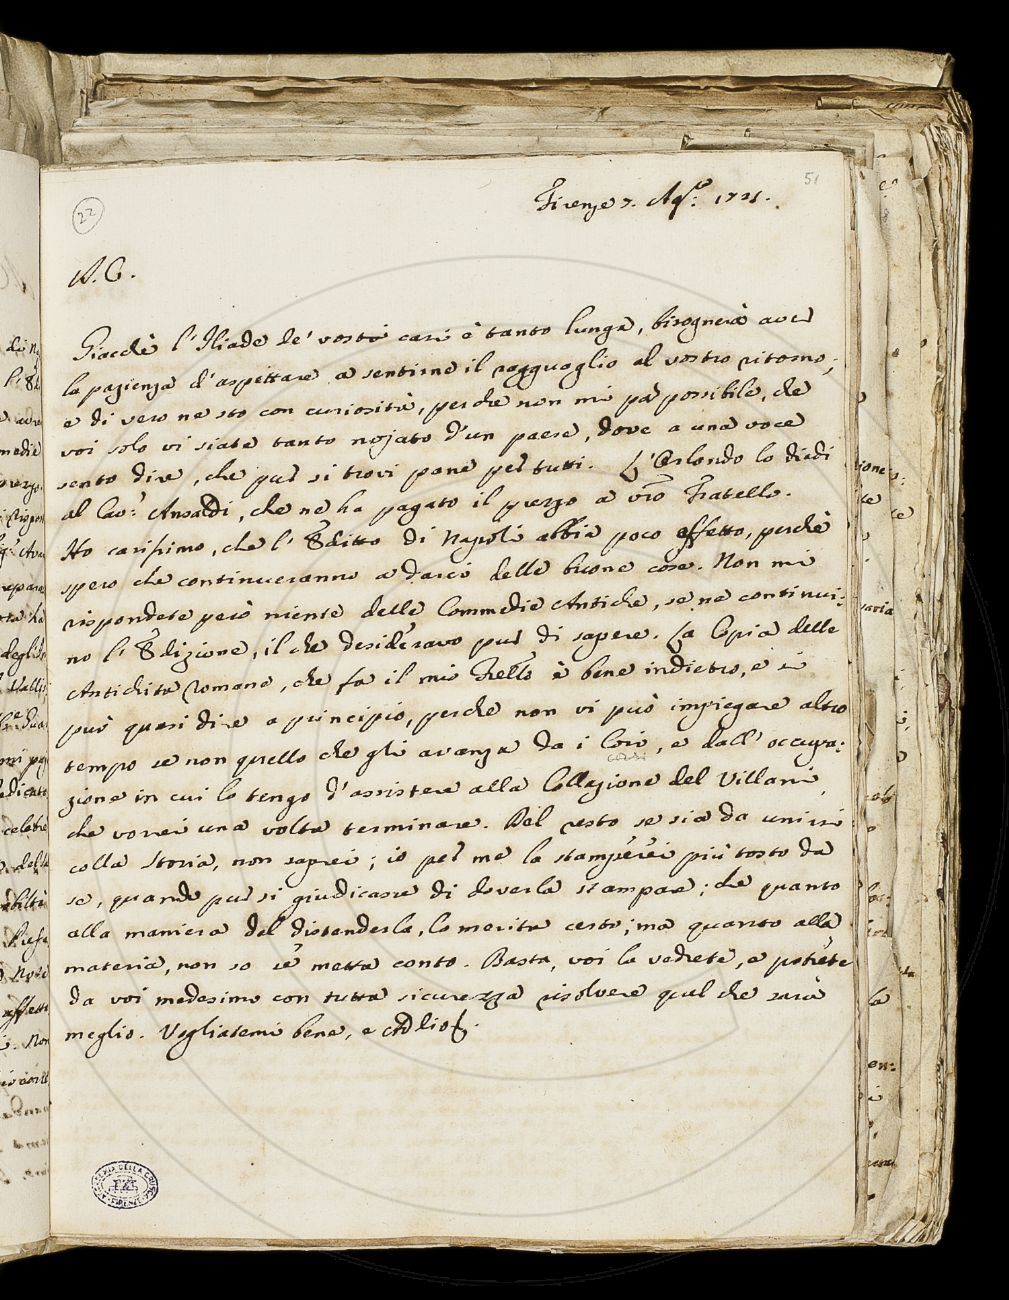 22
51
Firenze 7. Agto: 1721.
A. C.
Giacchè l'Iliade de' vostri casi è tanto lunga, bisognerà aver
la pazienza d'aspettare a sentirne il ragguaglio al vostro ritorno;
e di vero ne sto con curiosità, perche non mi par possibile, che
voi solo vi siate tanto nojato d'un paese, dove a una voce
sento dire, che pur si trovi pane per tutti. L'Orlando lo diedi
al Cav: Ansaldi, che ne ha pagato il prezzo a vro Fratello.
Ho carissimo, che l'Editto di Napoli abbia poco effetto, perchè
spero che continueranno a darci delle buone cose. Non mi
rispondete però niente delle Commedie Antiche, se ne continui:
no l'Edizione, il che desideravo pur di sapere. La Copia delle
Antichita Romane, che fa il mio Frello è bene indietro, e si
può quasi dire a principio, perche non vi può impiegare altro
tempo se non quello che gli avanza da i Cori, e dall'occupa:
zione in cui lo tengo d'assistere alla Collazione del Villani,
che vorrei una volta terminare. Del resto se sia da unirsi
colla Storia, non saprei; io per me la stamperei più tosto da
se, quando pur si giudicasse di doverla stampare; che quanto
alla maniera del distenderla, lo merita certo; ma quanto alla
materia, non so se metta conto. Basta, voi la vedrete, e potrete
da voi medesimo con tutta sicurezza risolvere quel che sarà
meglio. Vogliatemi bene, e Addio.
ACCADEMIA DELLA CRUSCA FIRENZE